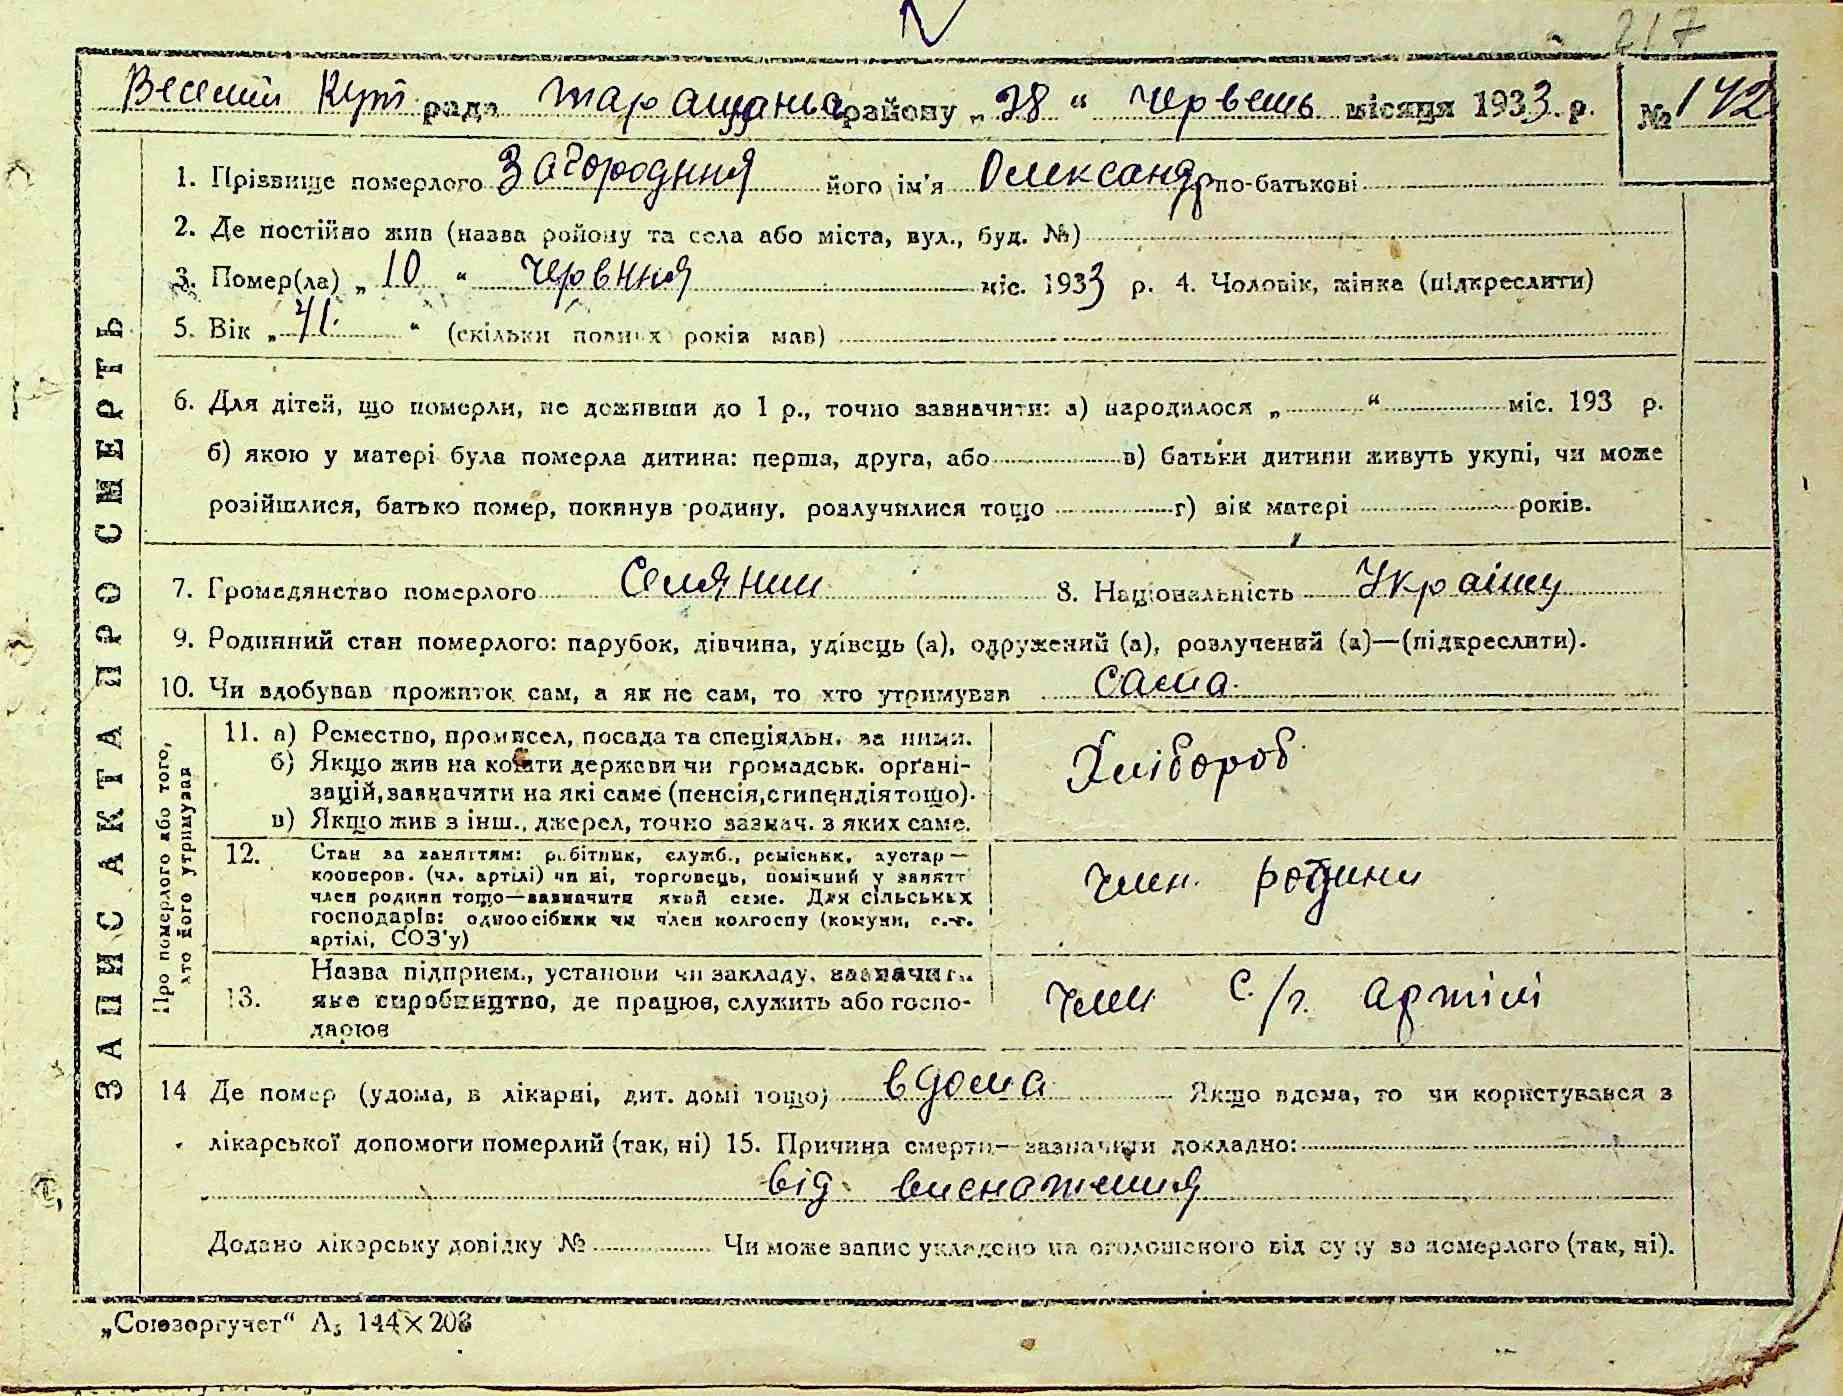 217
Веселий Кут рада Таращаньск району „28“ червень місяця 1933 р. № 142
1. Прізвище померлого Загородния його ім'я Олександр по-батькові
2. Де постійно жив (назва ройону та села або міста, вул., буд. №)
3. Помер(ла) „10“ червння міс. 1933 р. 4. Чоловік, жінка (підкреслити)
5. Вік „41.“ (скільки повних років мав)
6. Для дітей, що померли, не доживши до 1 р., точно зазначити: а) народилося „ “ міс. 193 р.
б) якою у матері була померла дитина: перша, друга, або в) батьки дитини живуть укупі, чи може
розійшлися, батько помер, покинув родину, розлучилися тощо г) вік матері років.
7. Громадянство померлого Селянин 8. Національність Україну
9. Родинний стан померлого: парубок, дівчина, удівець (а), одружений (а), розлучений (а)—(підкреслити).
10. Чи здобував прожиток сам, а як не сам, то хто утримував сама.
ЗАПИС АКТА ПРО СМЕРТЬ
Про померлого або того,
хто його утримував
11. а) Ремество, промисел, посада та спеціяльн. за ними.
б) Якщо жив на кошти держави чи громадськ. орґані-
зацій, зазначити на які саме (пенсія, стипендія тощо).
в) Якщо жив з інш., джерел, точно зазнач. з яких саме.
Хлібороб.
12. Стан за заняттям: робітник, служб., ремісник, кустар—
кооперов. (чл. артілі) чи ні, торговець, помічний у занятт
член родини тощо—зазначити який саме. Для сільських
господарів: одноосібник чи член колгоспу (комуни, с.-г.
артілі, СОЗ'у)
член. родини
13. Назва підприєм., установи чи закладу, зазначить
яке виробництво, де працює, служить або госпо-
дарює
член с./г. артілі
14 Де помер (удома, в лікарні, дит. домі тощо) вдома Якщо вдома, то чи користувався з
лікарської допомоги померлий (так, ні) 15. Причина смерти—зазначити докладно:
від виснаження
Додано лікарську довідку № Чи може запис укладено на оголошеного від суду за померлого (так, ні).
„Союзоргучет“ А5 144×203